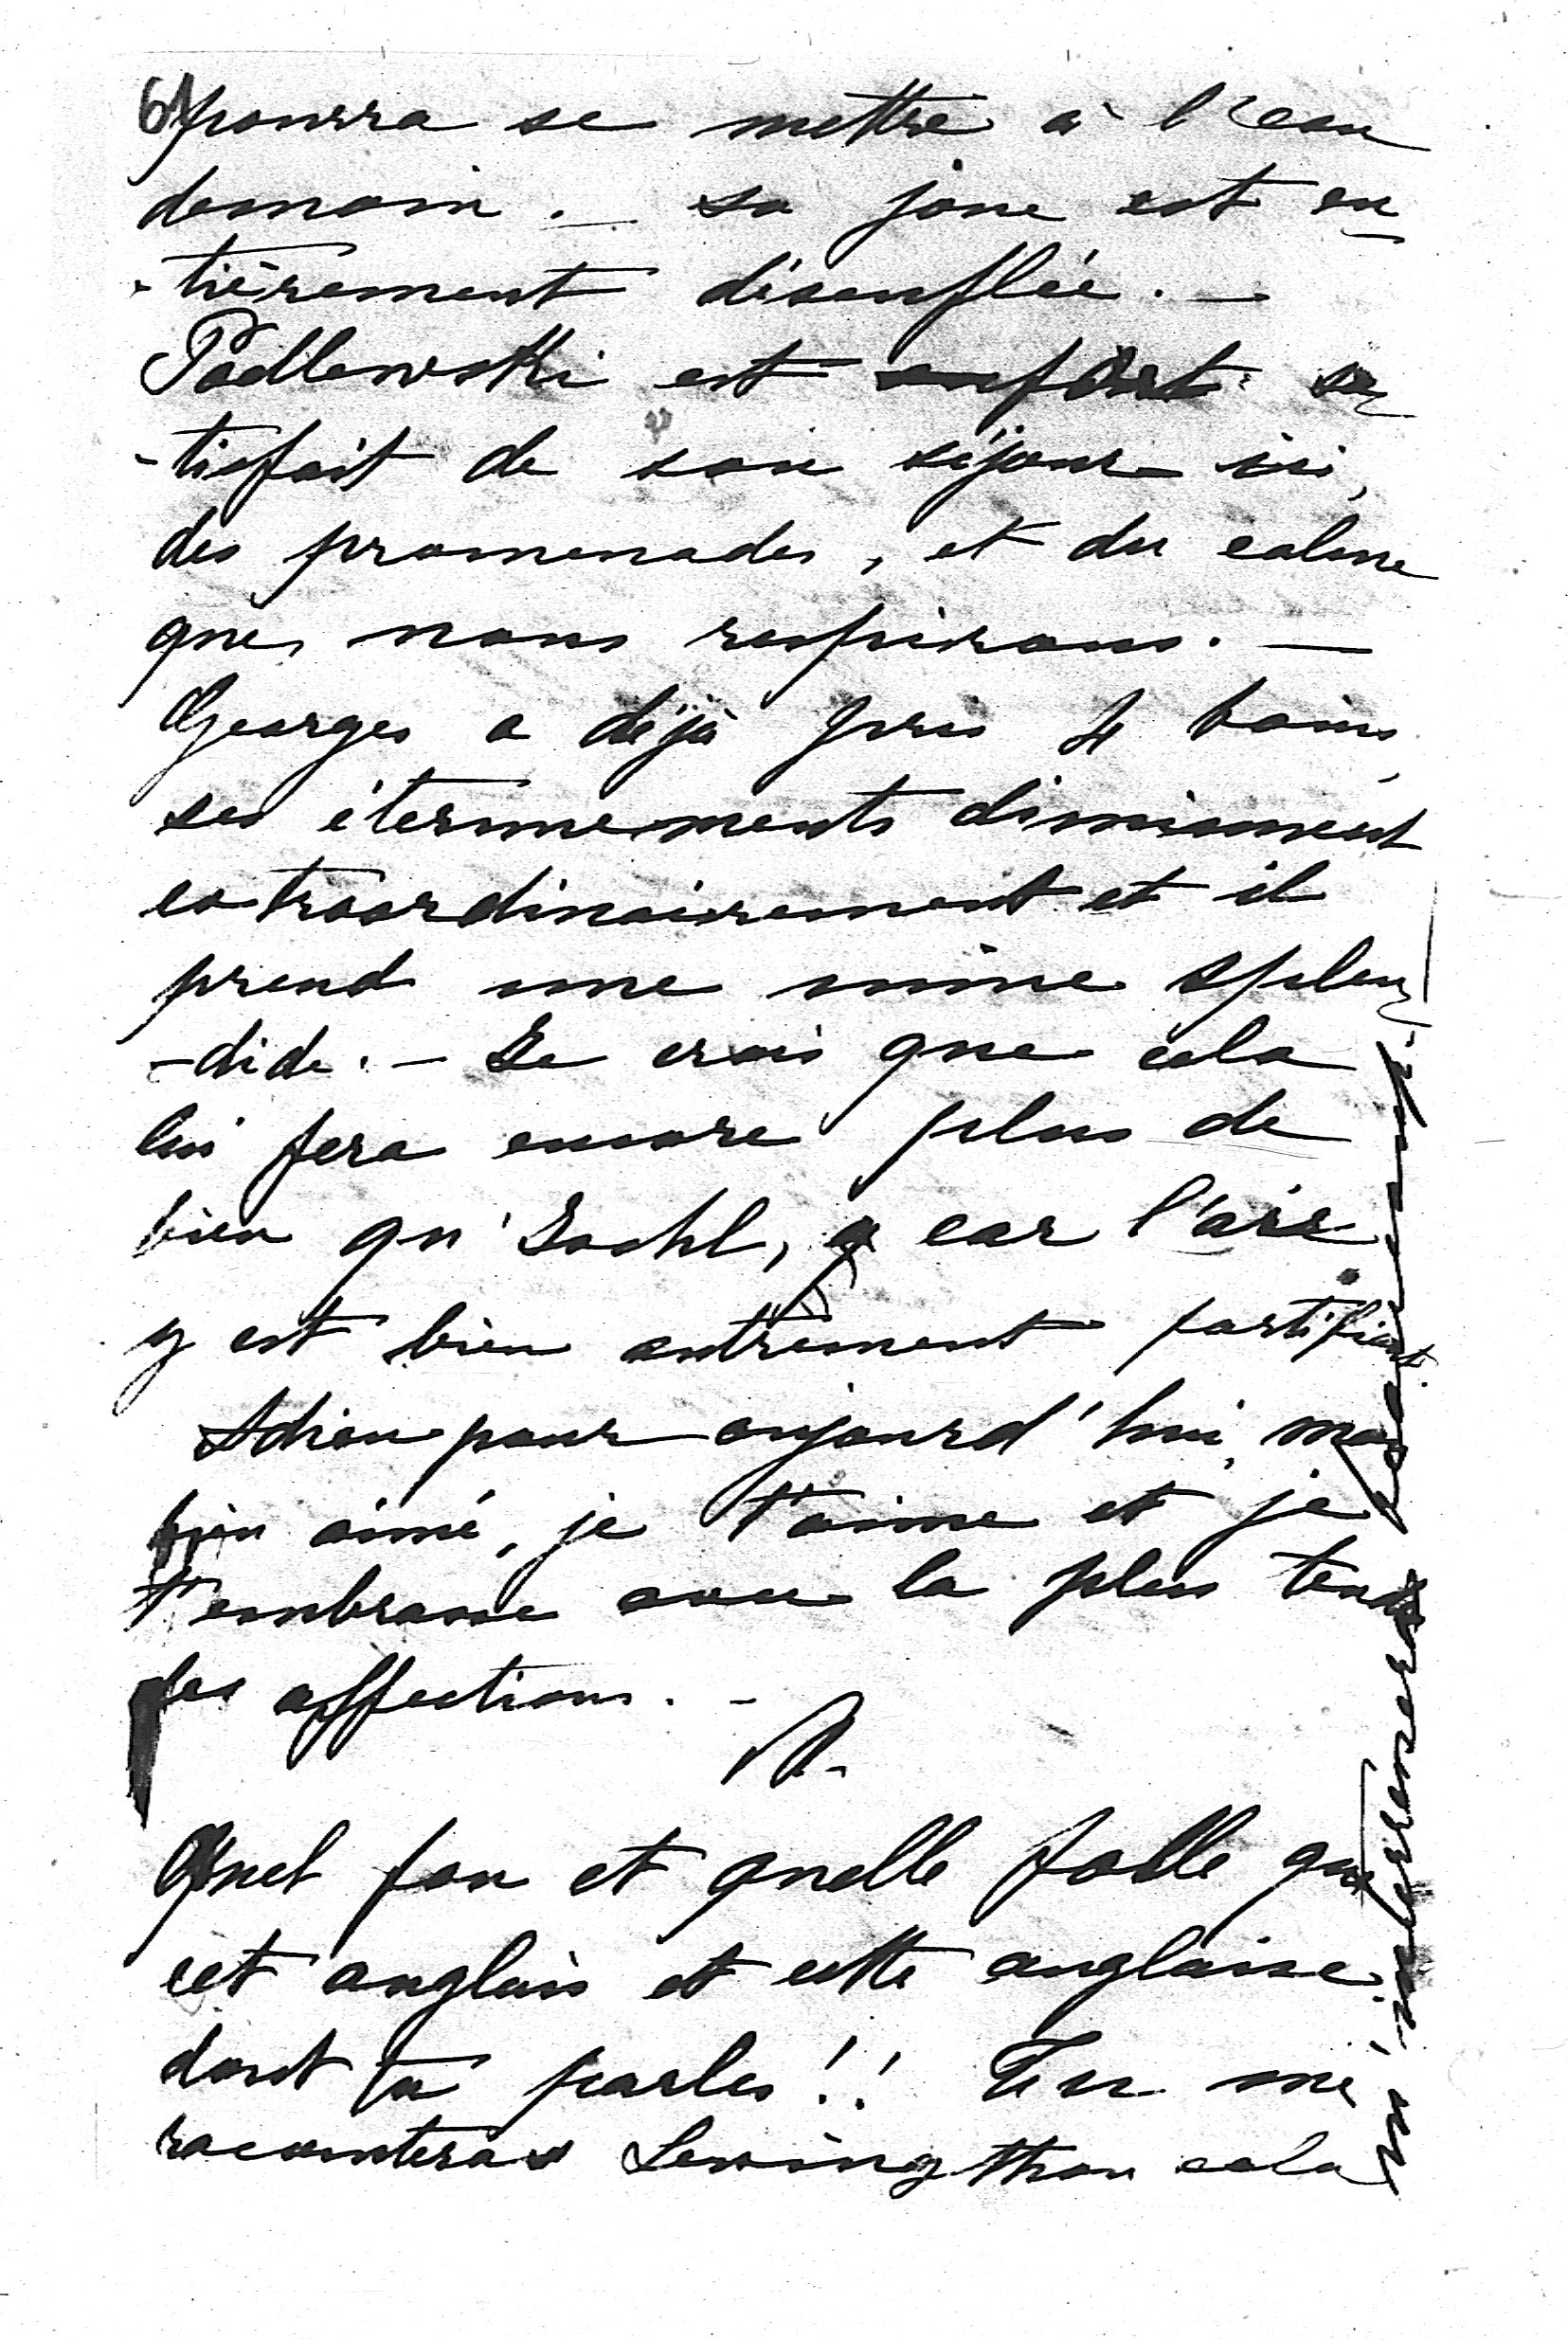 6) pourra se mettre à l'eau
demain. — sa joue est en
-tièrement désenflée. —
Podlewski est sa
-tisfait de son séjour ici,
des promenades, et du calme
que nous respirons. —
Georges a déjà pris 4 bains,
ses éternuements diminuent
extraordinairement et il
prend une mine splen
-dide. — Je crois que cela
lui fera encore plus de
bien qu'Ischl, car l'air
y est bien autrement fortifiant.
Adieu pour aujourd'hui, mon
bien aimé, je t'aime et je
t'embrasse avec la plus tendre
des affections. —
Quel fou et quelle folle que
cet anglais et cette anglaise
dont tu parles!! Tu me
raconteras cela
m'intéressera